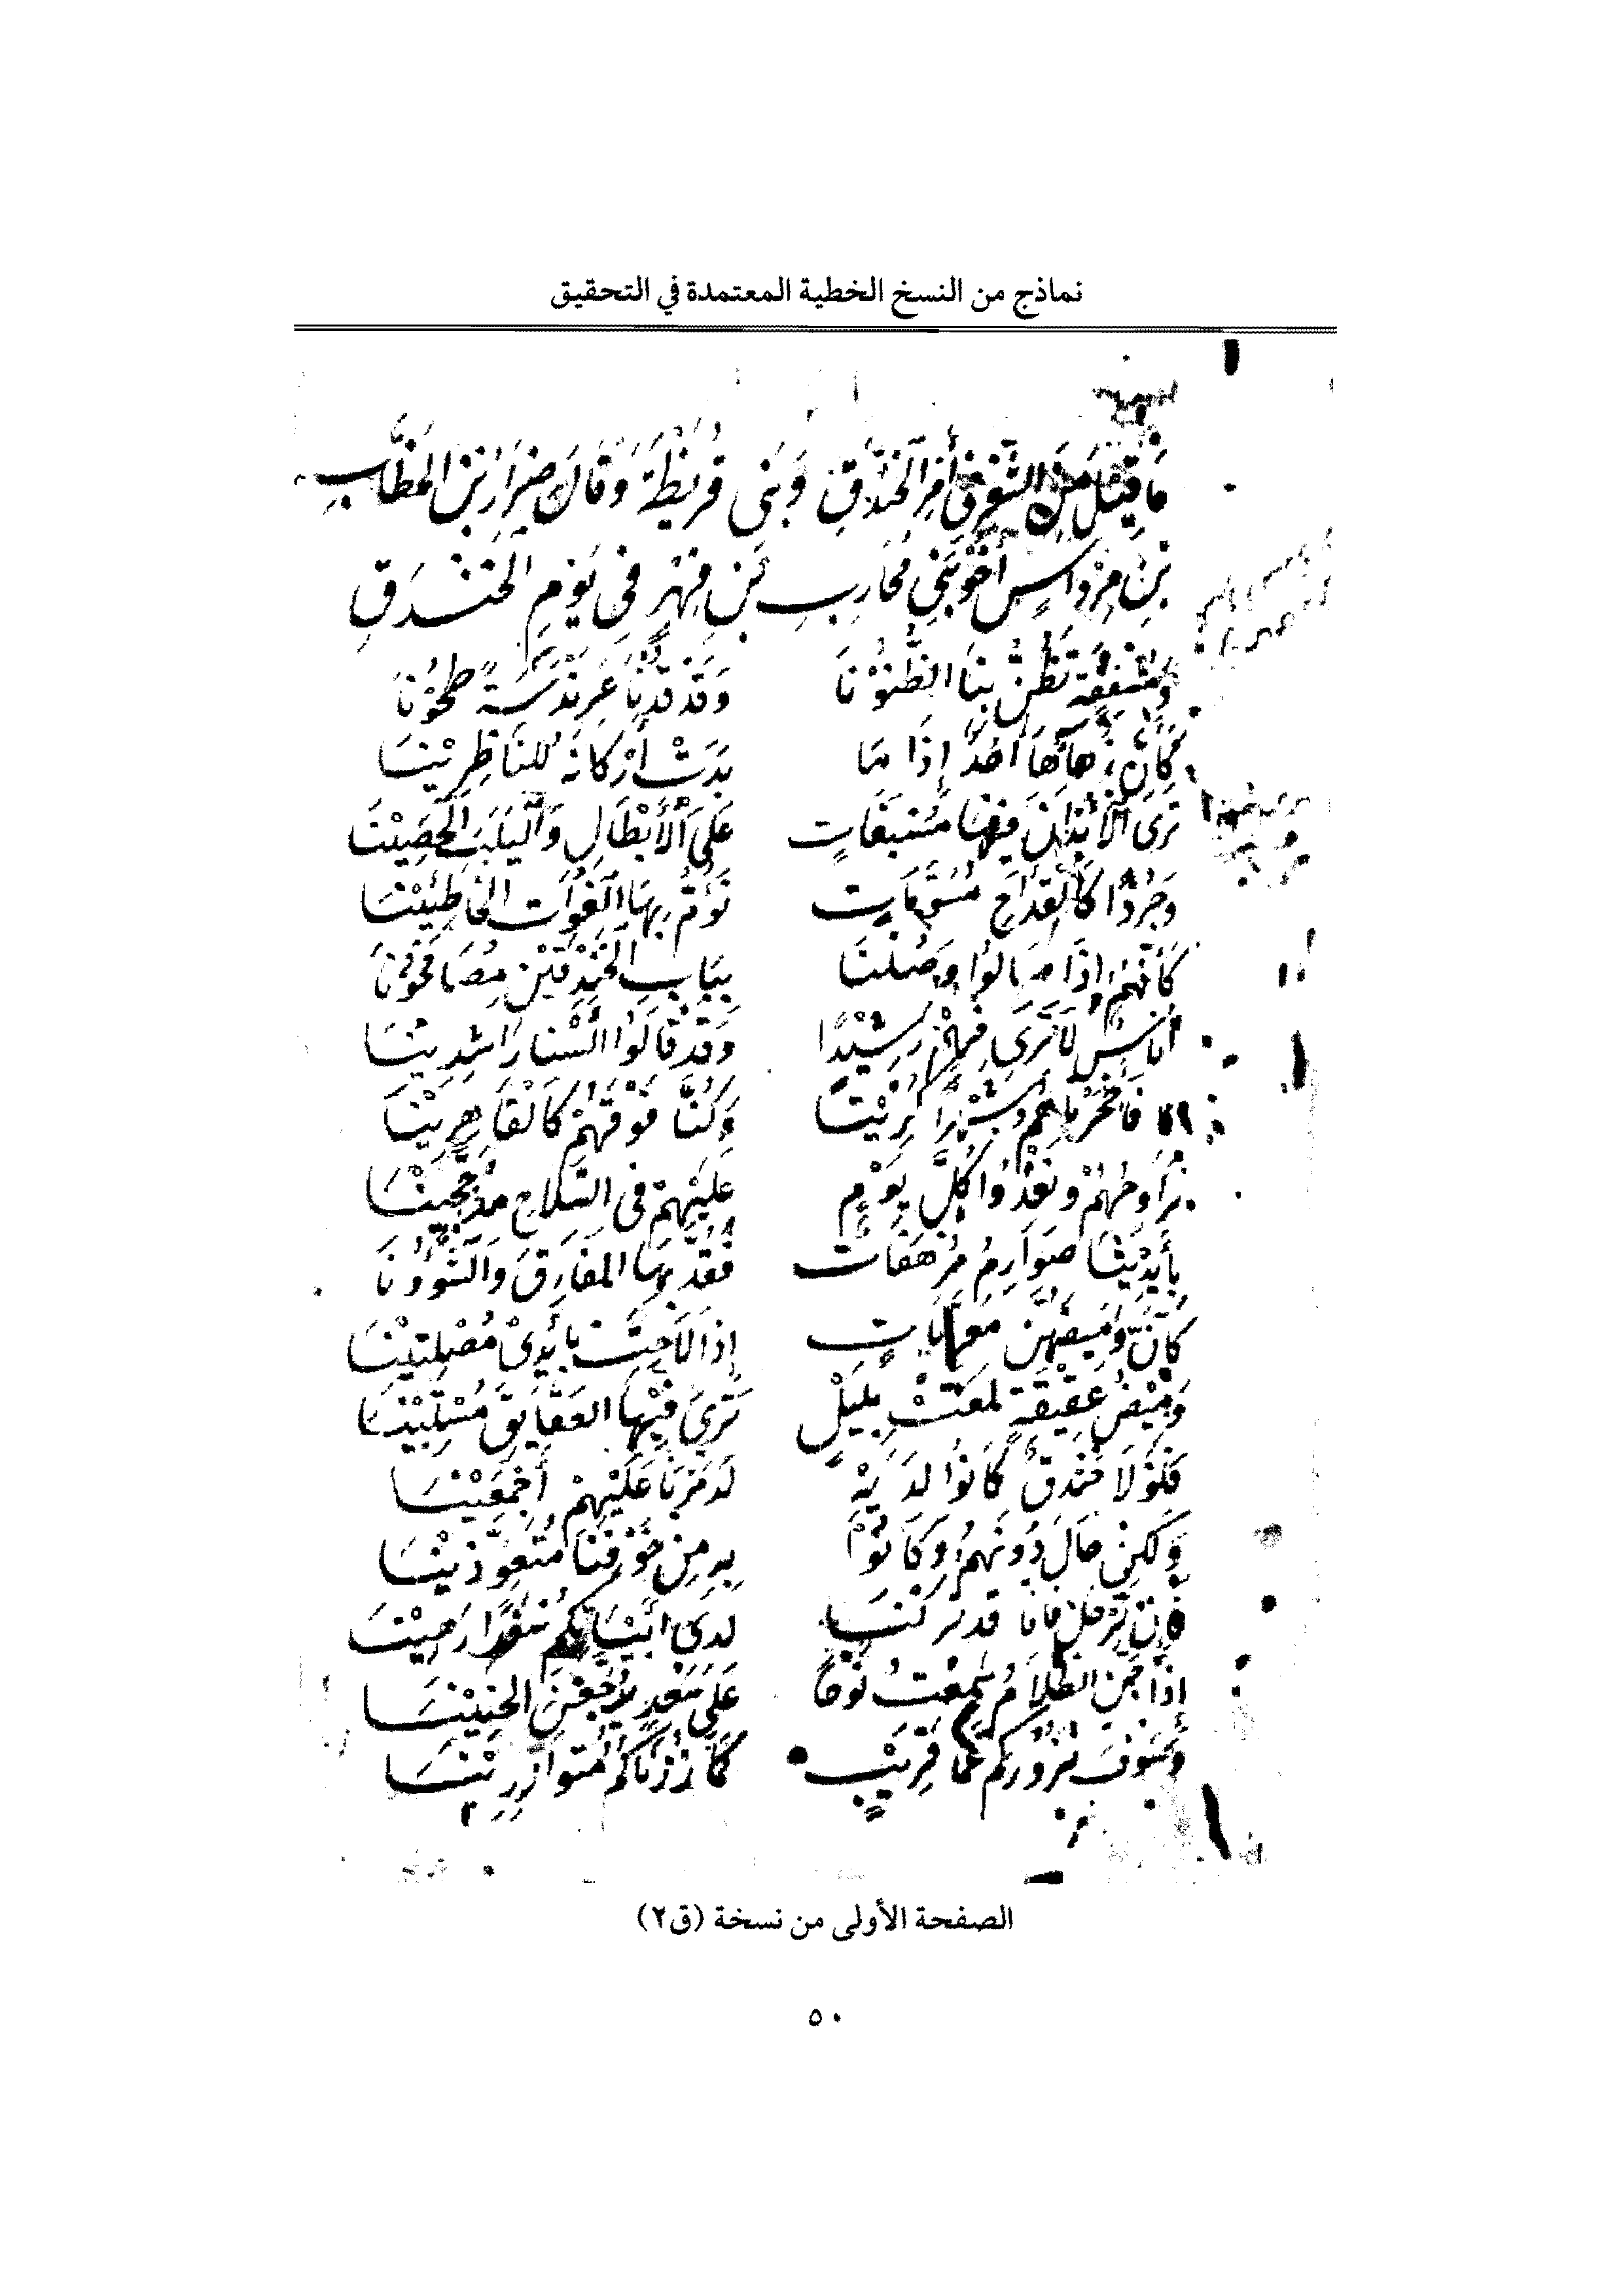 نماذج من النسخ الخطية المعتمدة في التحقيق
مَا قِيْلَ مِنَ الشِّعْرِ فِي أَمْرِ الْخَنْدَقِ وَبَنِي قُرَيْظَةَ وَقَالَ ضِرَارُ بْنُ الْخَطَّابِ
بْنِ مِرْدَاسٍ أَخُو بَنِي مُحَارِبِ بْنِ فِهْرٍ فِي يَوْمِ الْخَنْدَقِ
وَمُشْفِقَةٍ تَظُنُّ بِنَا الظُّنُوْنَا وَقَدْ قُدْنَا عَرَنْدَسَةً طَحُوْنَا
كَأَنَّ زُهَاءَهَا أُحُدٌ إِذَا مَا بَدَتْ أَرْكَانُهُ لِلنَّاظِرِيْنَا
تَرَى الْأَبْدَانَ فِيْهَا مُسْبَغَاتٍ عَلَى الْأَبْطَالِ وَالْيَلَبَ الْحَصِيْنَا
وَجُرْدًا كَالْقِدَاحِ مُسَوَّمَاتٍ نَؤُمُّ بِهَا الْغُوَاتَ الْخَاطِئِيْنَا
كَأَنَّهُمُ إِذَا صَالُوْا وَصُلْنَا بِبَابِ الْخَنْدَقَيْنِ مُصَافِحُوْنَا
أُنَاسٌ لَا تَرَى فِيْهِمْ رَشِيْدًا وَقَدْ قَالُوْا أَلَسْنَا رَاشِدِيْنَا
فَأَحْجَرْنَاهُمُ شَهْرًا كَرِيْتًا وَكُنَّا فَوْقَهُمْ كَالْقَاهِرِيْنَا
نُرَاوِحُهُمْ وَنَغْدُوْا كُلَّ يَوْمٍ عَلَيْهِمْ فِي السِّلَاحِ مُدَجَّجِيْنَا
بِأَيْدِيْنَا صَوَارِمُ مُرْهَفَاتٌ نَقُدُّ بِهَا الْمَفَارِقَ وَالشُّؤُوْنَا
كَأَنَّ وَمِيْضَهُنَّ مُعَرَّيَاتٍ إِذَا لَاحَتْ بِأَيْدِيْ مُصْلِتِيْنَا
وَمِيْضُ عَقِيْقَةٍ لَمَعَتْ بِلَيْلٍ تَرَى فِيْهَا الْعَقَايِقَ مُسْتَبِيْنَا
فَلَوْلَا خَنْدَقٌ كَانُوْا لَدَيْهِ لَدَمَّرْنَا عَلَيْهِمْ أَجْمَعِيْنَا
وَلَكِنْ حَالَ دُوْنَهُمُ وَكَانُوْا بِهِ مِنْ خَوْفِنَا مُتَعَوِّذِيْنَا
فَإِنْ نَرْحَلْ فَإِنَّا قَدْ تَرَكْنَا لَدَى أَبْيَاتِكُمْ سَعْدًا رَهِيْنَا
إِذَا جَنَّ الظَّلَامُ سَمِعْتَ نَوْحًا عَلَى سَعْدٍ يُرَجِّعْنَ الْحَنِيْنَا
وَسَوْفَ نَزُوْرُكُمْ عَمَّا قَرِيْبٍ كَمَا زُرْنَاكُمُ مُتَوَازِرِيْنَا
الصفحة الأولى من نسخة (ق٢)
٥٠